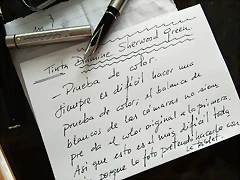 Tinta Diamine Sherwood Green
- Prueba de color.
Siempre es difícil hacer una
prueba de color; el balance de
blancos de las cámaras no siem
pre da el color original a la primera.
Así que esto es el más difícil toda
porque la foto pretendo hacerla con
la tablet.